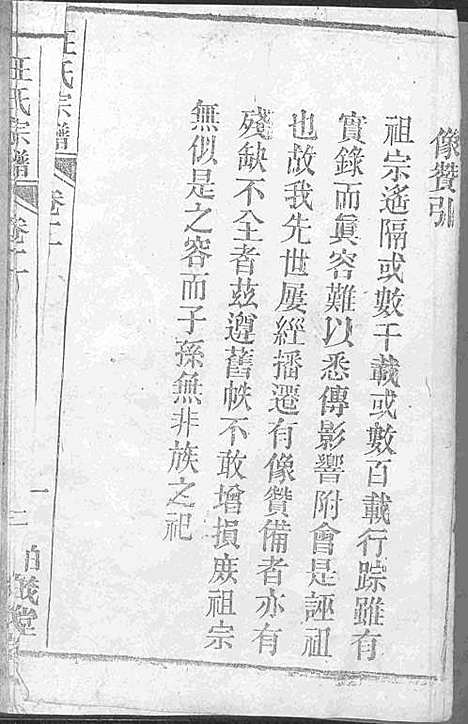 像贊引
祖宗遙隔或數千載或數百載行踪雖有
實錄而眞容難以悉傳影響附會是誣祖
也故我先世屢經播遷有像贊備者亦有
殘缺不全者茲遵舊帙不敢增損庶祖宗
無似是之容而子孫無非族之祀
王氏宗譜
卷二
一
王氏宗譜
二